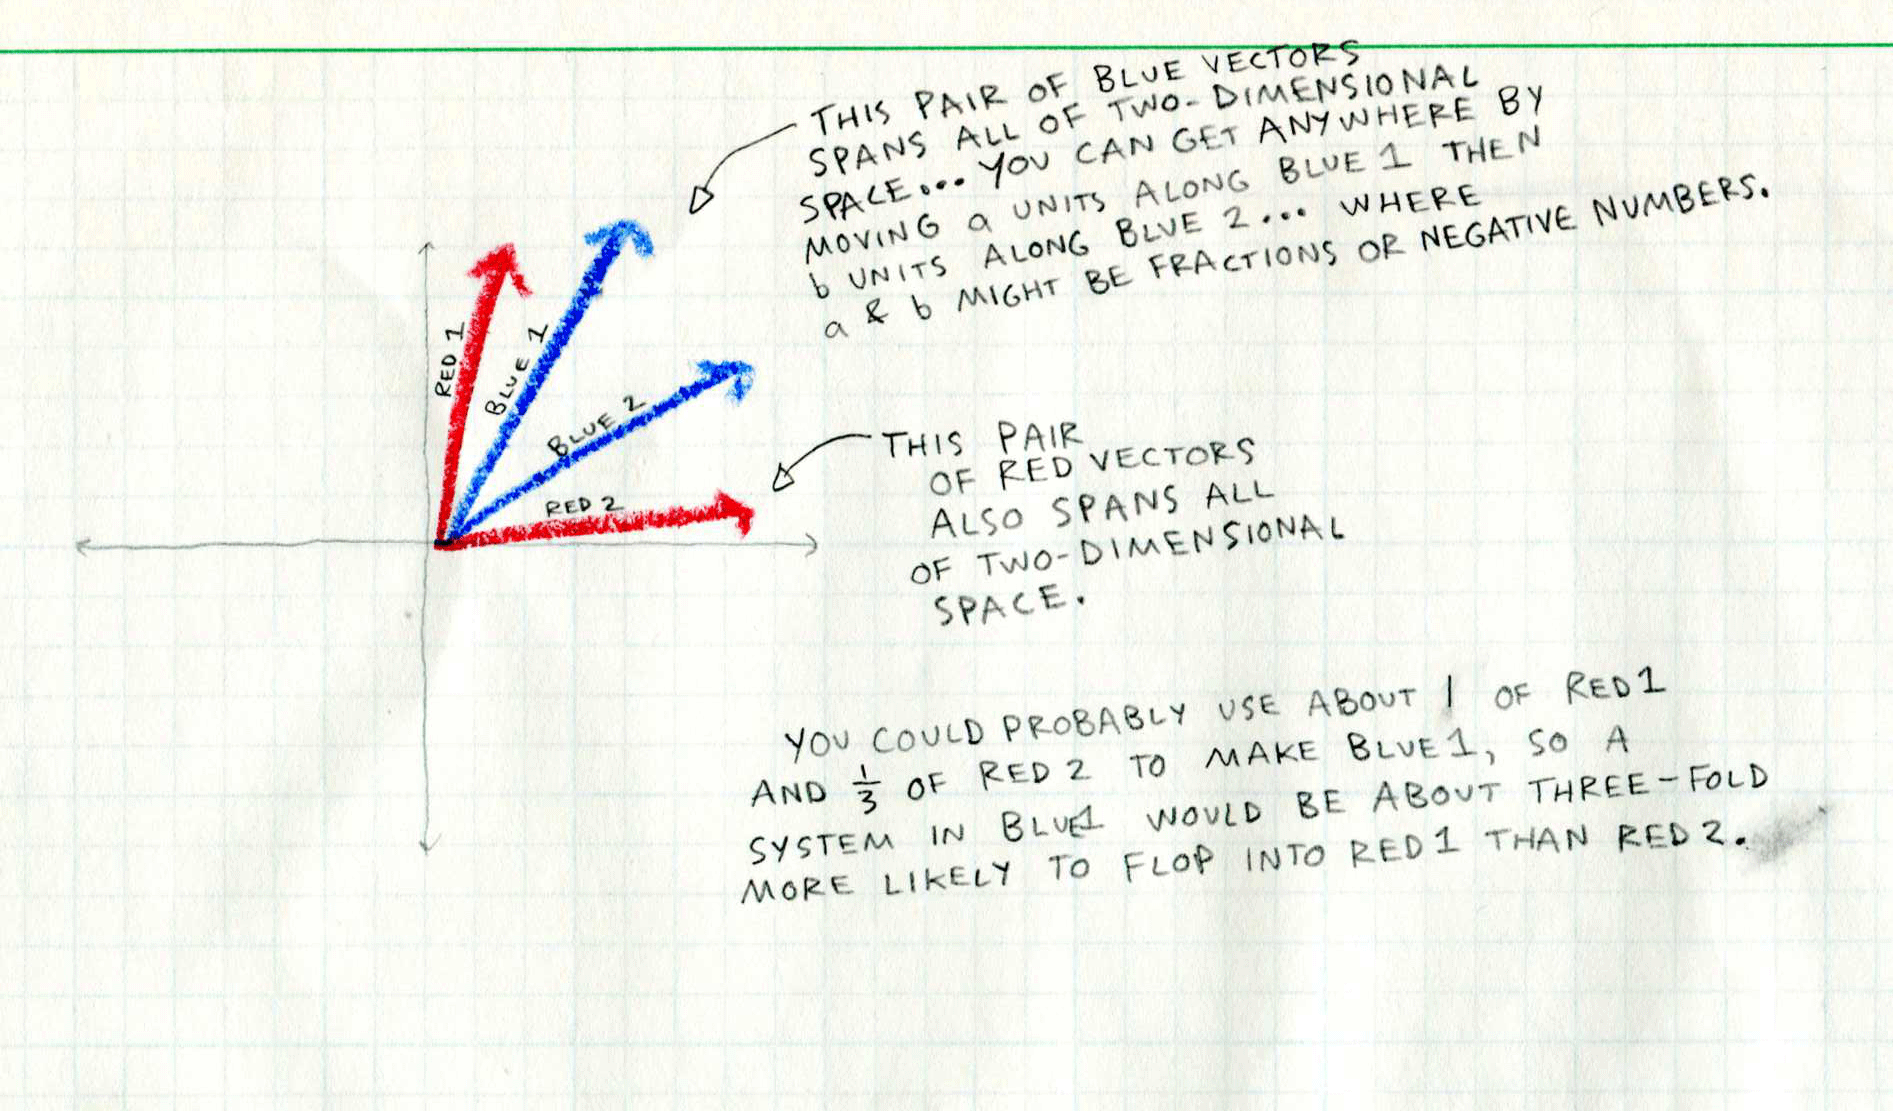 THIS PAIR OF BLUE VECTORS
SPANS ALL OF TWO-DIMENSIONAL
SPACE... YOU CAN GET ANYWHERE BY
MOVING a UNITS ALONG BLUE 1 THEN
b UNITS ALONG BLUE 2... WHERE
a & b MIGHT BE FRACTIONS OR NEGATIVE NUMBERS.
RED 1
BLUE 1
BLUE 2
RED 2
THIS PAIR
OF RED VECTORS
ALSO SPANS ALL
OF TWO-DIMENSIONAL
SPACE.
YOU COULD PROBABLY USE ABOUT 1 OF RED 1
AND 1/3 OF RED 2 TO MAKE BLUE 1, SO A
SYSTEM IN BLUE1 WOULD BE ABOUT THREE-FOLD
MORE LIKELY TO FLOP INTO RED 1 THAN RED 2.